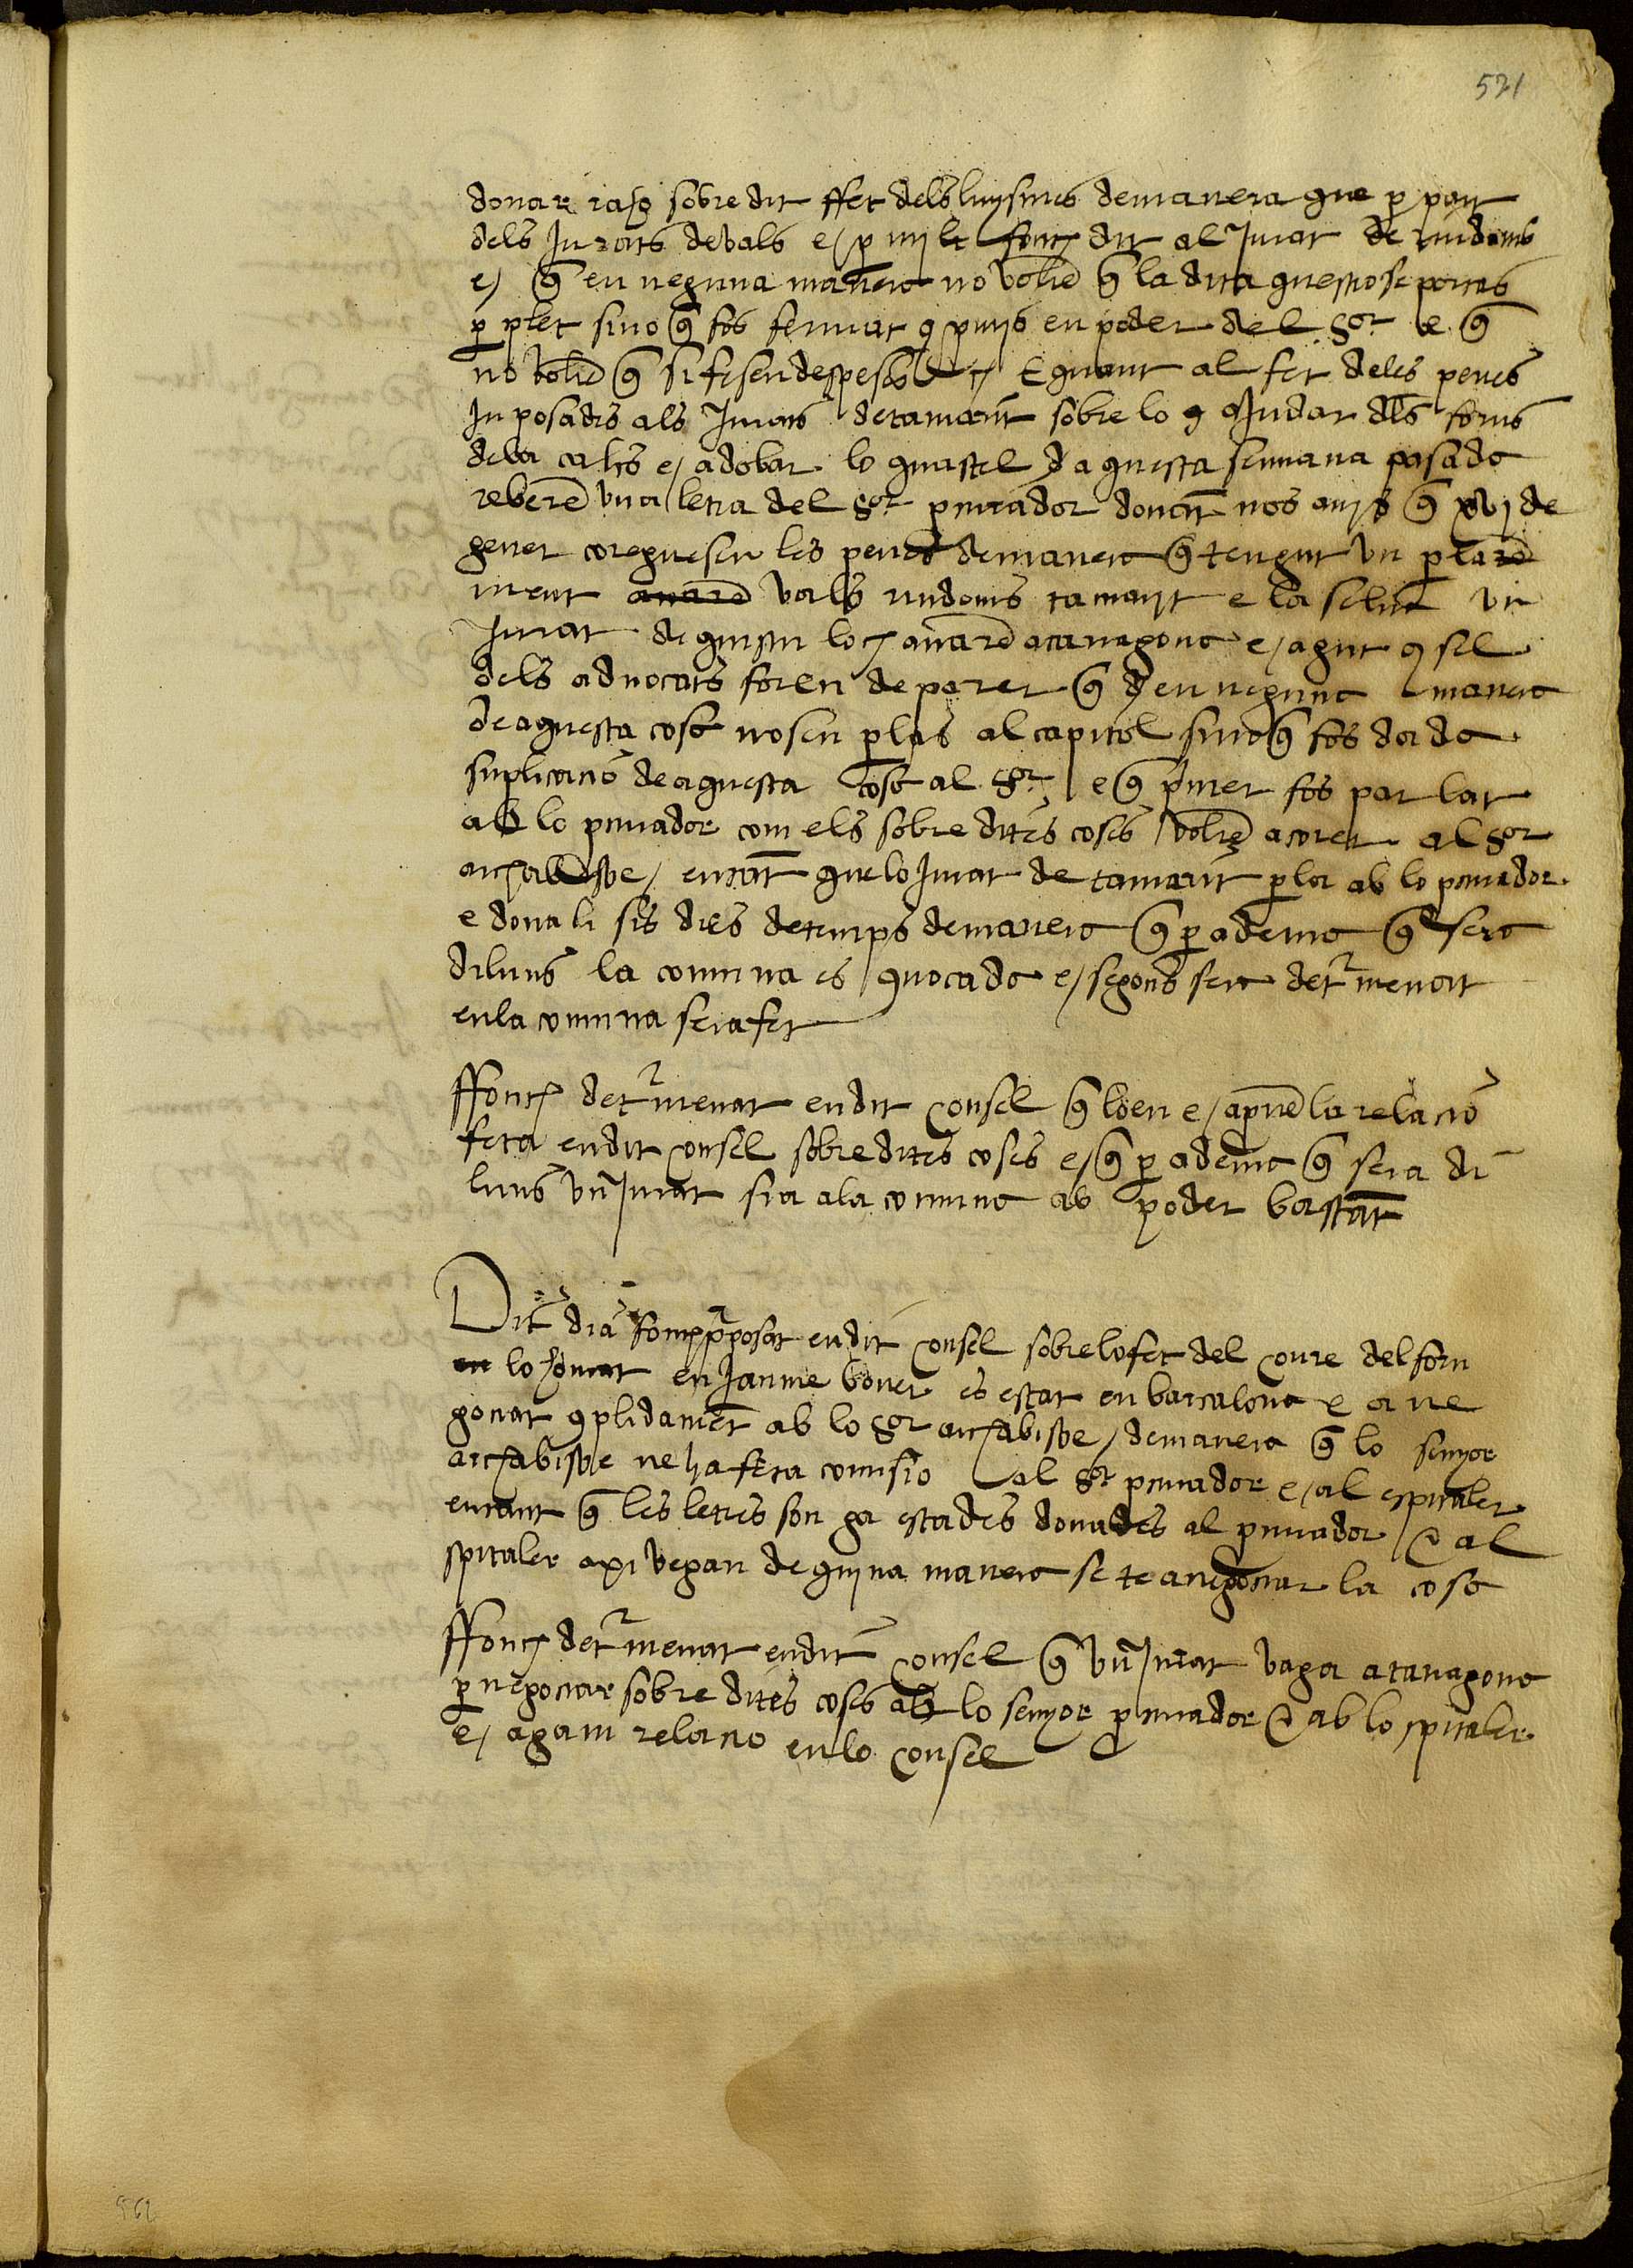 521
donar raso sobre dit ffet dels luysmes de manera que p part
dels Jurats de vals e p mi li fonch dit al Jurat de riudoms
e q en neguna manera no volie q la dita questio se portas
p plet sino q fos fermat 9 pmis en poder del Sor e q
no volie q si fesen despeses E quant al fet deles penes
Inposades als Jurats de tamarit sobre lo 9 Judar dels forns
dela cals e adobar lo quastel daquesta semana pasada
rebere una letra del Sor pcurador donat nos avis q xvj de
gener coreguesen les penes de manera q tengut un plare
ment anare vals riudoms tamarit e la selva un
Jurat de quiscu loch anare a taragona e agut 9 sel
dels advocats foren de parer q den neguna manera
de aquesta cosa no sen plas al capitol sino q fos dada
suplicacio de aquesta cosa al Sor e q primer fos parlat
ab lo pcurador com els sobre dites coses volie acorer al Sor
archabisbe entat que lo Jurat de tamarit pla ab lo pcurador
e dona li sis dies de temps de manera q p a dema q sera
diluns la comuna es 9vocada e segons sera det menat
en la comuna sera fet
ffonch det menat en dit consel q loen e aprve la relacio
feta en dit consel sobre dites coses e q p a dema q sera di
luns un Jurat sia a la comuna ab poder bastat
Dit dia fonch pposat en dit consel sobre lo fet del coure del forn
en lo honrat en Jaume bover es estat en barcalona e a ne
gociat 9plidament ab lo Sor archabisbe de manera q lo senyor
archabisbe ne ha feta comisio al Sor pcurador e al espitaler
entant q les letres son ga estades donades al pcurador e al
spitaler axi vegan de quina manera se te a negociar la cosa
ffonch det menat en dit consel q un Jurat vaga a taragona
p negociar sobre dites coses ab lo senyor pcurador e ab lo spitaler
e agam relacio en lo consel
562